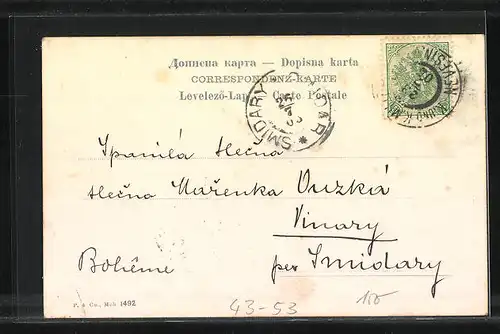 Дописна карта — Dopisna karta
CORRESPONDENZ-KARTE
Levelező-Lap — Carte Postale
SMIDARY
Spanilá slečna
slečna Mařenka Ouzká
Vinary
per Smidary
Bohême
P. & Co., Mch 1492
43-53
150